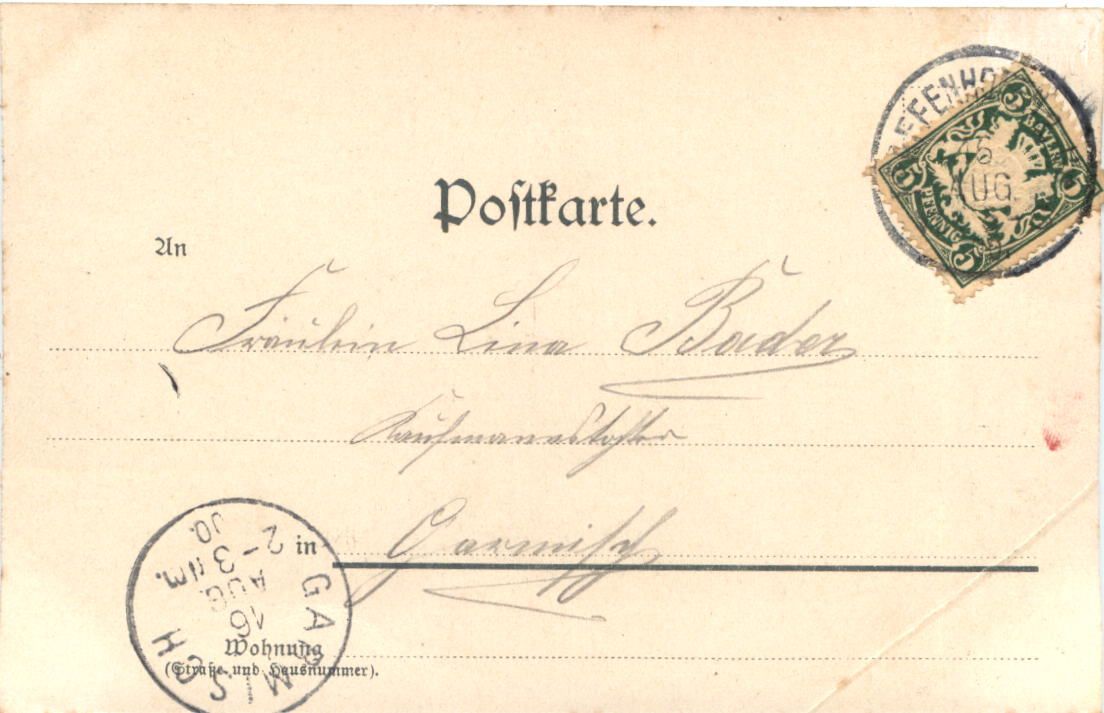 Postkarte.
An
Fräulein Lina Bader
Kaufmannstochter
in Garmisch
Wohnung
(Straße und Hausnummer).
5 BAYERN 5
5 PFENNIG 5
15
AUG.
GARMISCH
16
AUG.
2-3 NM.